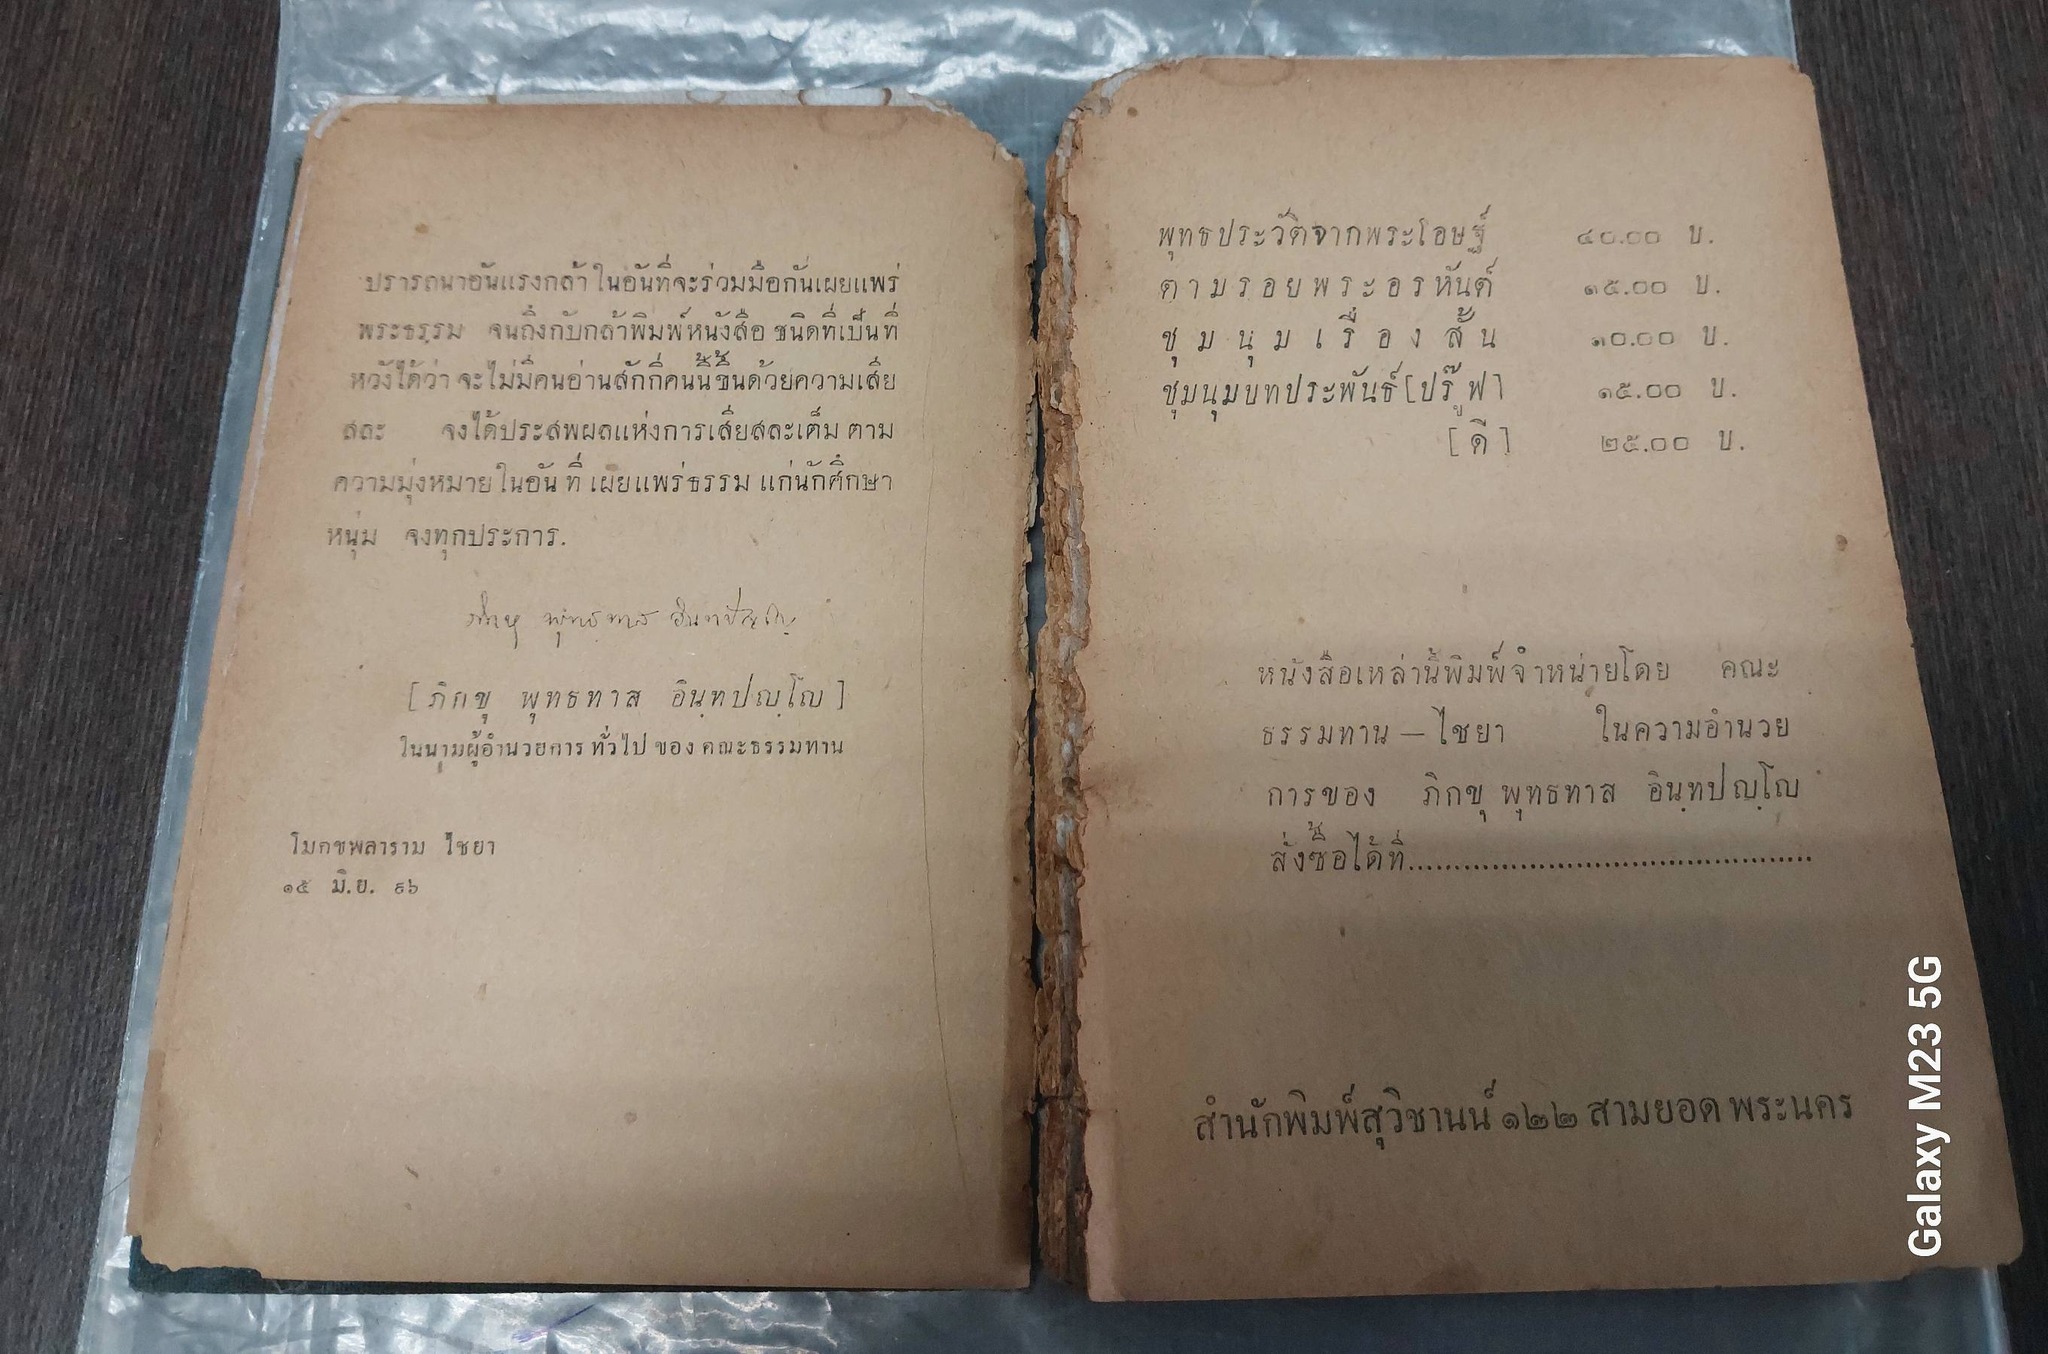 ปรารถนาอันแรงกล้า ในอันที่จะร่วมมือกันเผยแพร่
พระธรฺรม จนถึงกับกล้าพิมพ์หนังสือ ชนิดที่เป็นที่
หวังได้ว่า จะไม่มีคนอ่านสักกี่คนนี้ขึ้นด้วยความเสีย
สละ จงได้ประสพผลแห่งการเสียสละเต็ม ตาม
ความมุ่งหมาย ในอัน ที่ เผยแพร่ธรรม แก่นักศึกษา
หนุ่ม จงทุกประการ.
ภิกขุ พุทธทาส อินทปัญโญ
[ ภิกขุ พุทธทาส อินฺทปญฺโญ ]
ในนามผู้อำนวยการ ทั่วไป ของ คณะธรรมทาน
โมกขพลาราม ไชยา
๑๕ มิ.ย. ๙๖
พุทธประวัติจากพระโอษฐ์ ๔๐.๐๐ บ.
ตามรอยพระอรหันต์ ๑๕.๐๐ บ.
ชุมนุมเรื่องสั้น ๑๐.๐๐ บ.
ชุมนุมบทประพันธ์ [ปรู๊ฟ] ๑๕.๐๐ บ.
[ดี] ๒๕.๐๐ บ.
หนังสือเหล่านี้พิมพ์จำหน่ายโดย คณะ
ธรรมทาน — ไชยา ในความอำนวย
การของ ภิกขุ พุทธทาส อินฺทปญฺโญ
สั่งซื้อได้ที่............................................
สำนักพิมพ์สุวิชานน์ ๑๒๒ สามยอด พระนคร
Galaxy M23 5G